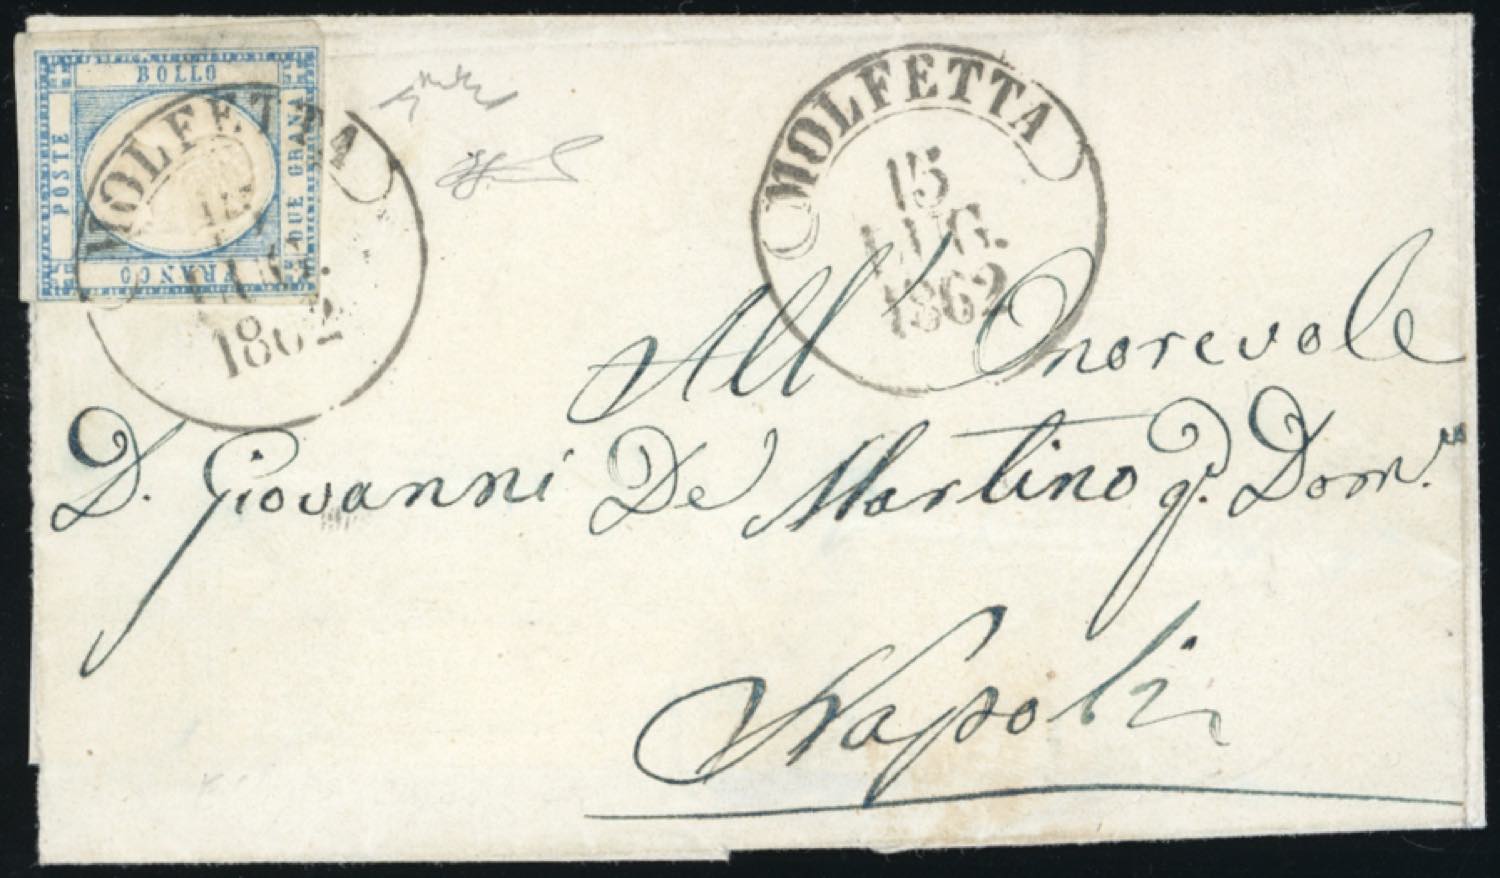 BOLLO
POSTE
DUE GRANA
FRANCO
MOLFETTA
15
LUG.
1862
MOLFETTA
15
LUG.
1862
All' Onorevole
D. Giovanni De Martino q. Dom.
Napoli